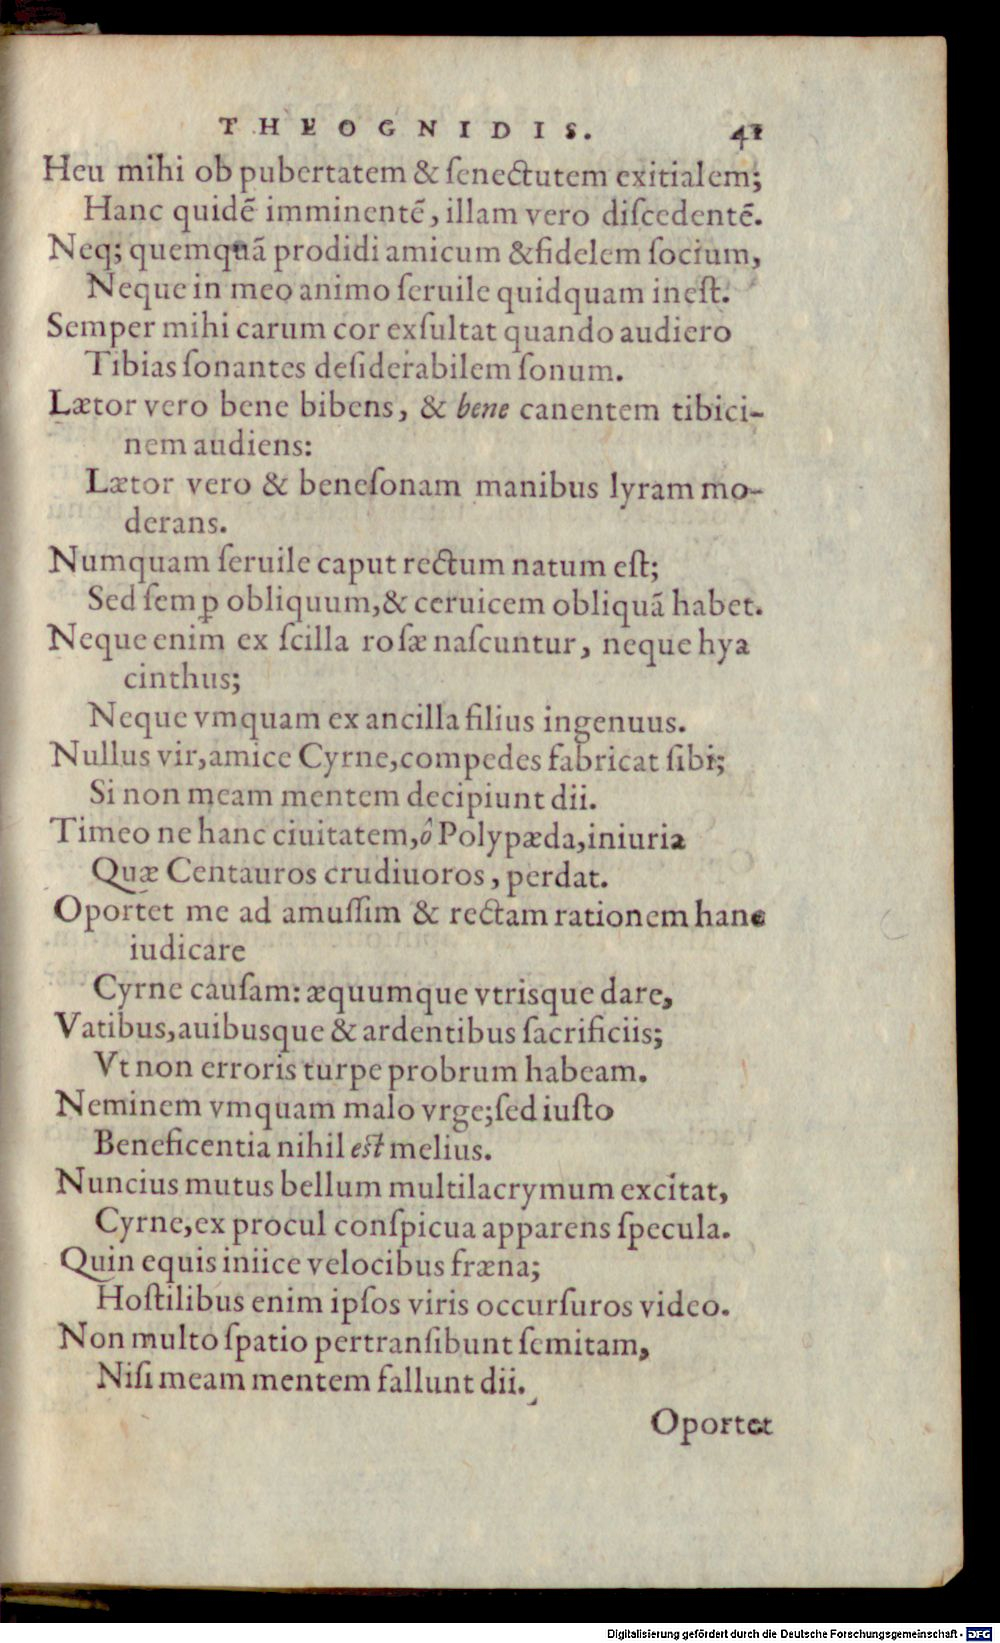 THEOGNIDIS. 41
Heu mihi ob pubertatem & ſenectutem exitialem;
Hanc quidē imminentē, illam vero diſcedentē.
Neq; quemquā prodidi amicum & fidelem ſocium,
Neque in meo animo ſeruile quidquam ineſt.
Semper mihi carum cor exſultat quando audiero
Tibias ſonantes deſiderabilem ſonum.
Lætor vero bene bibens, & bene canentem tibici-
nem audiens:
Lætor vero & beneſonam manibus lyram mo-
derans.
Numquam ſeruile caput rectum natum eſt;
Sed ſemꝑ obliquum, & ceruicem obliquā habet.
Neque enim ex ſcilla roſæ naſcuntur, neque hya
cinthus;
Neque vmquam ex ancilla filius ingenuus.
Nullus vir, amice Cyrne, compedes fabricat ſibi;
Si non meam mentem decipiunt dii.
Timeo ne hanc ciuitatem, ô Polypæda, iniuria
Quæ Centauros crudiuoros, perdat.
Oportet me ad amuſſim & rectam rationem hanc
iudicare
Cyrne cauſam: æquumque vtrisque dare,
Vatibus, auibusque & ardentibus ſacrificiis;
Vt non erroris turpe probrum habeam.
Neminem vmquam malo vrge; ſed iuſto
Beneficentia nihil eſt melius.
Nuncius mutus bellum multilacrymum excitat,
Cyrne, ex procul conſpicua apparens ſpecula.
Quin equis iniice velocibus fræna;
Hoſtilibus enim ipſos viris occurſuros video.
Non multo ſpatio pertranſibunt ſemitam,
Niſi meam mentem fallunt dii.
Oportet
Digitalisierung gefördert durch die Deutsche Forschungsgemeinschaft - DFG